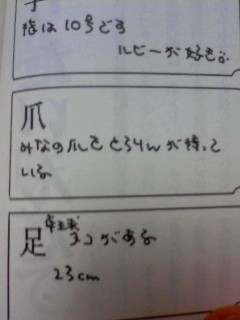 指は10号です
ルビーが好き。
爪
みなの爪をとろりんが待って
いる
足
タコがある
23cm